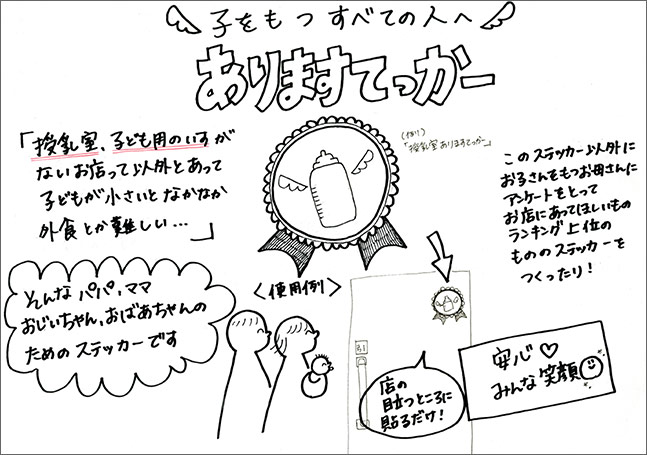 子をもつ すべての人へ
ありますてっカー
「授乳室、子ども用のいすが
ないお店って以外とあって
子どもが小さいとなかなか
外食とか難しい…」
(例)
「授乳室ありますてっカー」
このステッカー以外に
お子さんをもつお母さんに
アンケートをとって
お店にあってほしいもの
ランキング上位の
もののステッカーを
つくったり!
そんなパパ、ママ
おじいちゃん、おばあちゃんの
ためのステッカーです
<使用例>
引
店の
目立つところに
貼るだけ!
安心♡
みんな笑顔